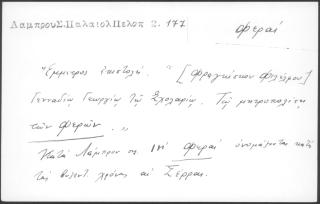 Λαμπρου Σ. Παλαιολ Πελοπ 2. 177
Φεραί
"Έμμετρος ἐπιστολή. " [Φραγκίσκου Φιλέλφου]
Γενναδίῳ Γεωργίῳ τῷ Σχολαρίῳ. Τῷ μητροπολίτῃ
τῶν Φερῶν . "
Κατὰ Λάμπρον σ. Φεραί ὀνομάζονται κατὰ
τοὺς βυζαντ. χρόνους αἱ Σέρραι.